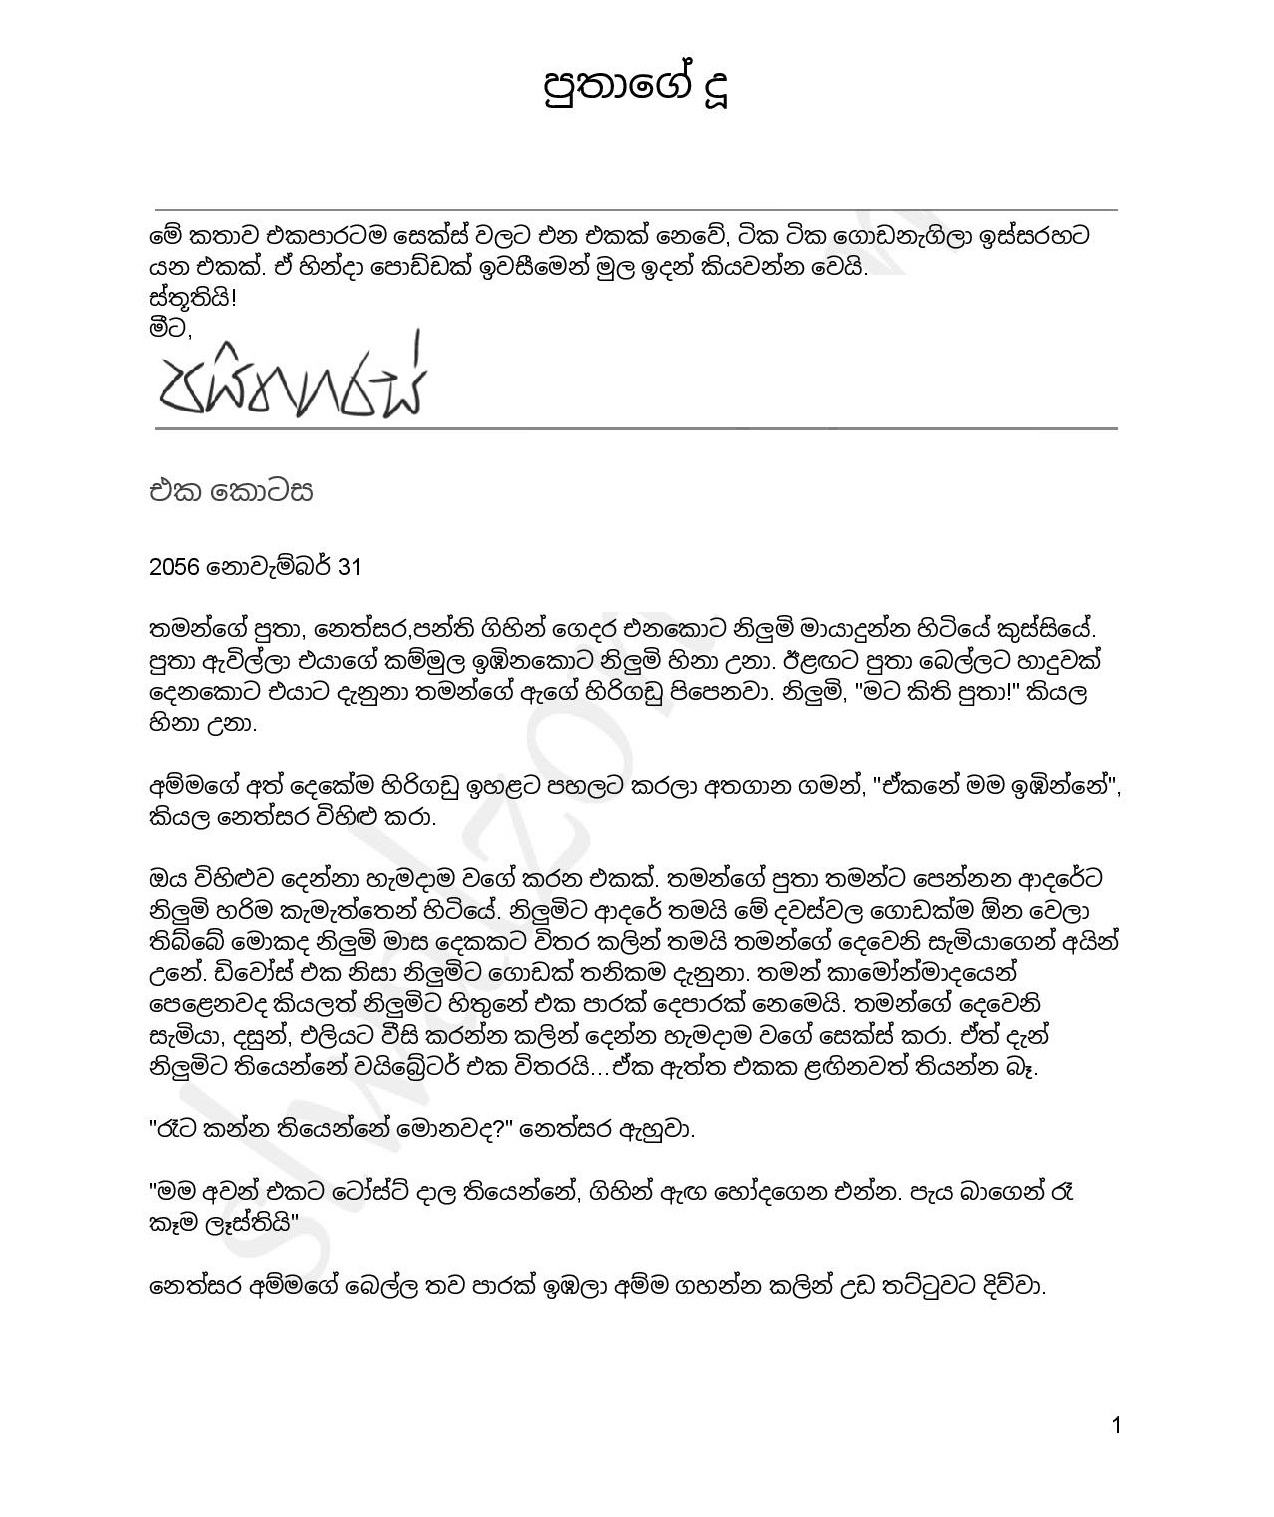 පුතාගේ දූ
මේ කතාව එකපාරටම සෙක්ස් වලට එන එකක් නෙවේ, ටික ටික ගොඩනැගිලා ඉස්සරහට
යන එකක්. ඒ හින්දා පොඩ්ඩක් ඉවසීමෙන් මුල ඉදන් කියවන්න වෙයි.
ස්තූතියි!
මීට,
එක කොටස
2056 නොවැම්බර් 31
තමන්ගේ පුතා, නෙත්සර,පන්ති ගිහින් ගෙදර එනකොට නිලුමි මායාදුන්න හිටියේ කුස්සියේ.
පුතා ඇවිල්ලා එයාගේ කම්මුල ඉඹිනකොට නිලුමි හිනා උනා. ඊළඟට පුතා බෙල්ලට හාදුවක්
දෙනකොට එයාට දැනුනා තමන්ගේ ඇගේ හිරිගඩු පිපෙනවා. නිලුමි, "මට කිති පුතා!" කියල
හිනා උනා.
අම්මගේ අත් දෙකේම හිරිගඩු ඉහළට පහලට කරලා අතගාන ගමන්, "ඒකනේ මම ඉඹින්නේ",
කියල නෙත්සර විහිළු කරා.
ඔය විහිළුව දෙන්නා හැමදාම වගේ කරන එකක්. තමන්ගේ පුතා තමන්ට පෙන්නන ආදරේට
නිලුමි හරිම කැමැත්තෙන් හිටියේ. නිලුමිට ආදරේ තමයි මේ දවස්වල ගොඩක්ම ඕන වෙලා
තිබ්බේ මොකද නිලුමි මාස දෙකකට විතර කලින් තමයි තමන්ගේ දෙවෙනි සැමියාගෙන් අයින්
උනේ. ඩිවෝස් එක නිසා නිලුමිට ගොඩක් තනිකම දැනුනා. තමන් කාමෝන්මාදයෙන්
පෙළෙනවද කියලත් නිලුමිට හිතුනේ එක පාරක් දෙපාරක් නෙමෙයි. තමන්ගේ දෙවෙනි
සැමියා, දසුන්, එලියට වීසි කරන්න කලින් දෙන්න හැමදාම වගේ සෙක්ස් කරා. ඒත් දැන්
නිලුමිට තියෙන්නේ වයිබ්‍රේටර් එක විතරයි...ඒක ඇත්ත එකක ළඟිනවත් තියන්න බෑ.
"රෑට කන්න තියෙන්නේ මොනවද?" නෙත්සර ඇහුවා.
"මම අවන් එකට ටෝස්ට් දාල තියෙන්නේ, ගිහින් ඇඟ හෝදගෙන එන්න. පැය බාගෙන් රෑ
කෑම ලෑස්තියි"
නෙත්සර අම්මගේ බෙල්ල තව පාරක් ඉඹලා අම්ම ගහන්න කලින් උඩ තට්ටුවට දිව්වා.
1